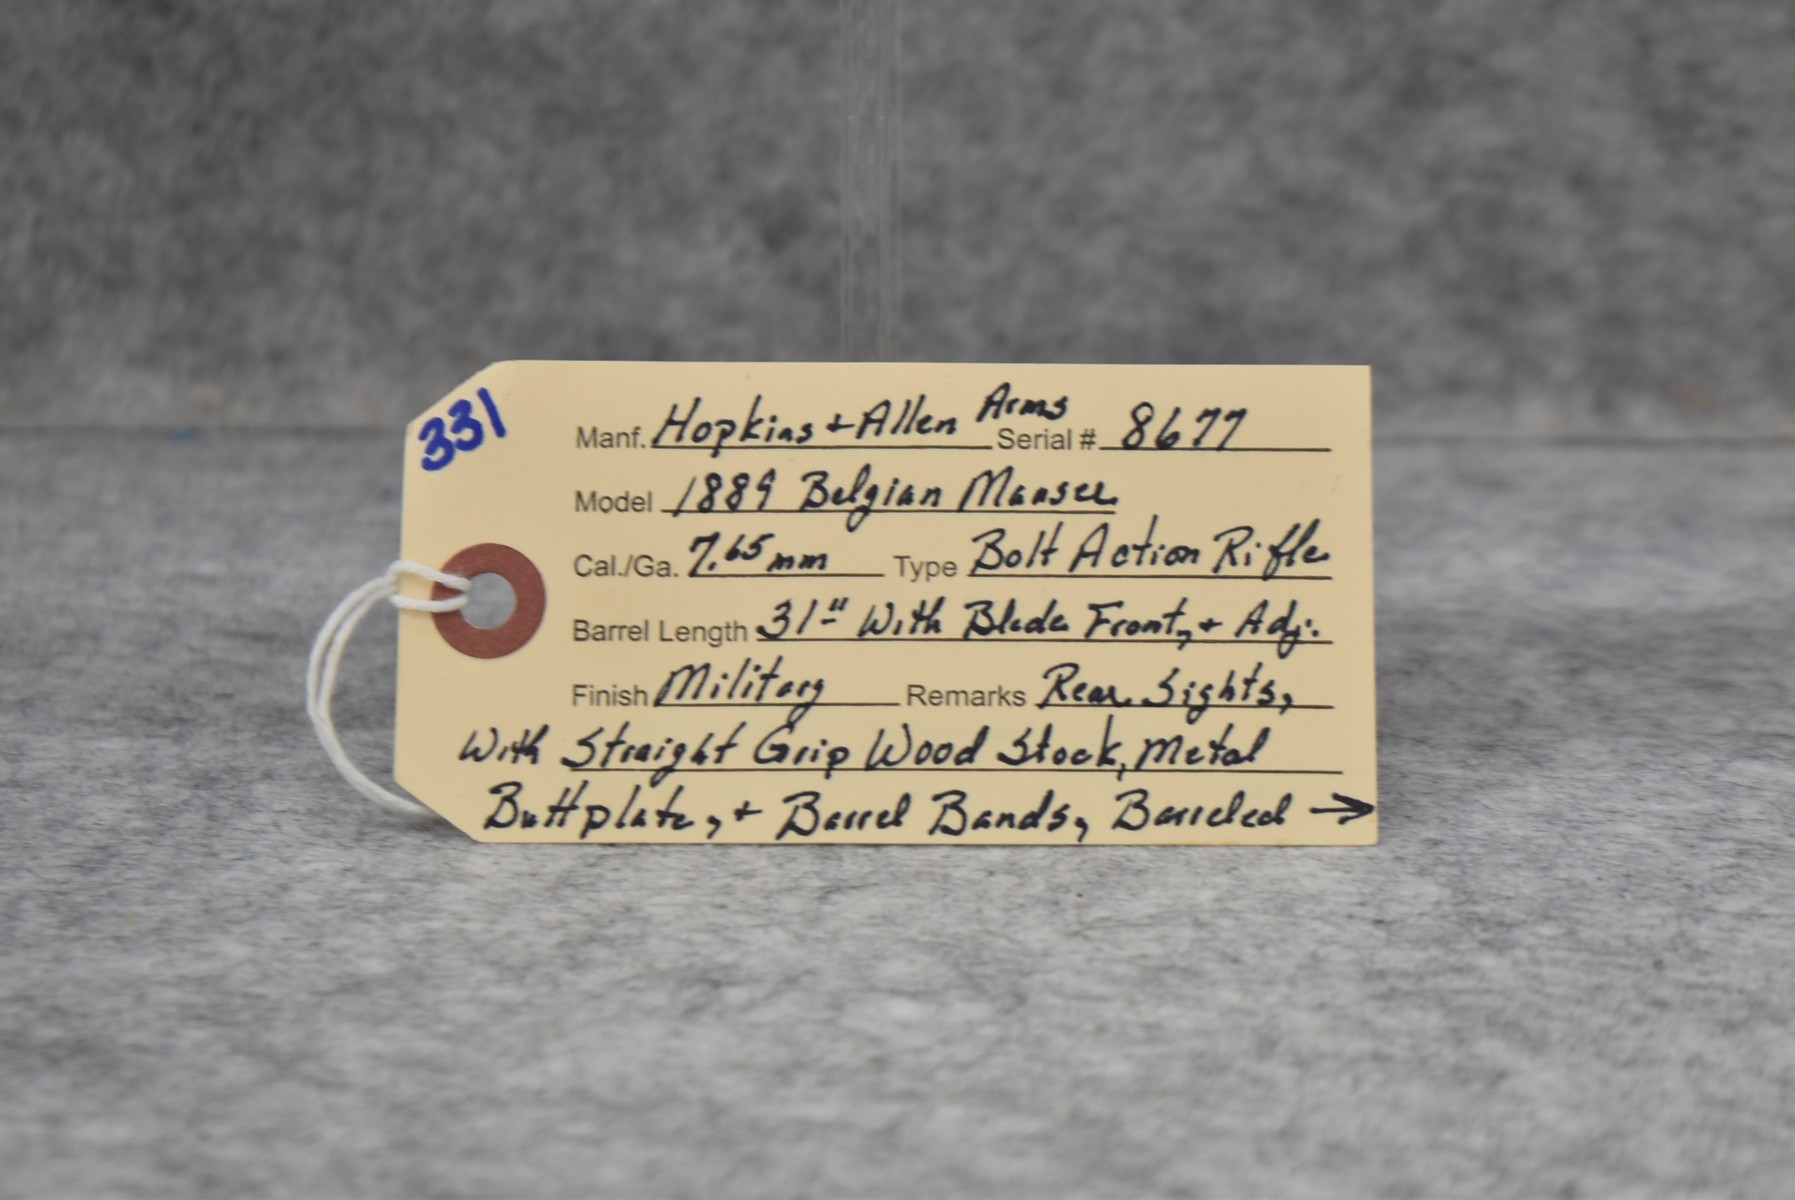 331
Manf. Hopkins + Allen Arms Serial # 8677
Model 1889 Belgian Mauser
Cal./Ga. 7.65mm Type Bolt Action Rifle
Barrel Length 31" With Blade Front, + Adj.
Finish Military Remarks Rear Sights,
With Straight Grip Wood Stock, Metal
Buttplate, + Barrel Bands, Barreled →